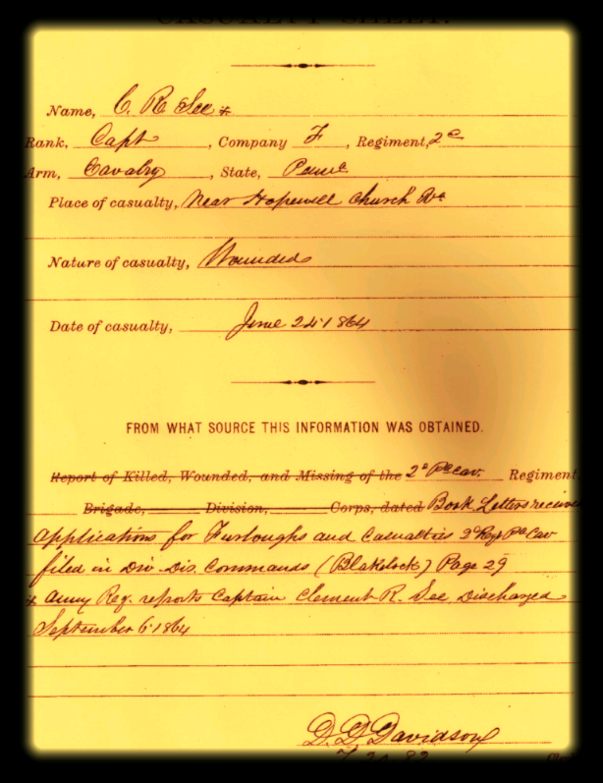 CASUALTY SHEET.
Name, C. R. See *
Rank, Capt , Company F , Regiment, 2d
Arm, Cavalry , State, Penna
Place of casualty, Near Hopewell Church Va
Nature of casualty, Wounded
Date of casualty, June 24 1864
FROM WHAT SOURCE THIS INFORMATION WAS OBTAINED.
Report of Killed, Wounded, and Missing of the 2d Pa Cav. Regiment
Brigade, Division, Corps, dated Book Letters receive
applications for Furloughs and Casualties 2 Regt Pa Cav
filed in Div. Dis. Commands (Blakelock) Page 29
* Army Reg. reports Captain Clement R. See, Discharged
September 6 1864
D. D. Davidson